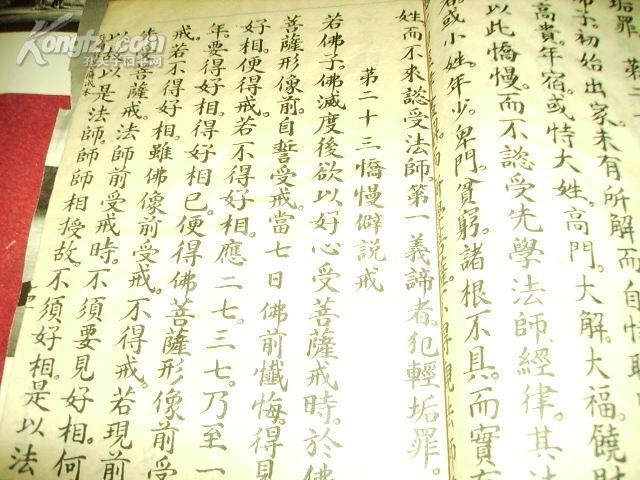 垢罪。第
佛子。初始出家。未有所解。而自恃聰
高貴。年宿。或恃大姓。高門。大解。大福。饒財
以此憍慢。而不諮受先學法師。經律。其法
或小姓。年少。卑門。貧窮。諸根不具。而實有
姓而不來諮受法師。第一義諦者。犯輕垢罪。
第二十三憍慢僻説戒
若佛子。佛滅度後。欲以好心受菩薩戒時。於佛
菩薩形像前。自誓受戒。當七日佛前懺悔。得見
好相。便得戒。若不得好相。應二七。三七。乃至一
年。要得好相。得好相已。便得佛菩薩形像前受
戒。若不得好相。雖佛像前受戒。不得戒。若現前
先菩薩戒。法師前受戒時。不須要見好相。何
以以是法師。師師相授故。不須好相。是以法
Kongfz.com
孔夫子旧书网